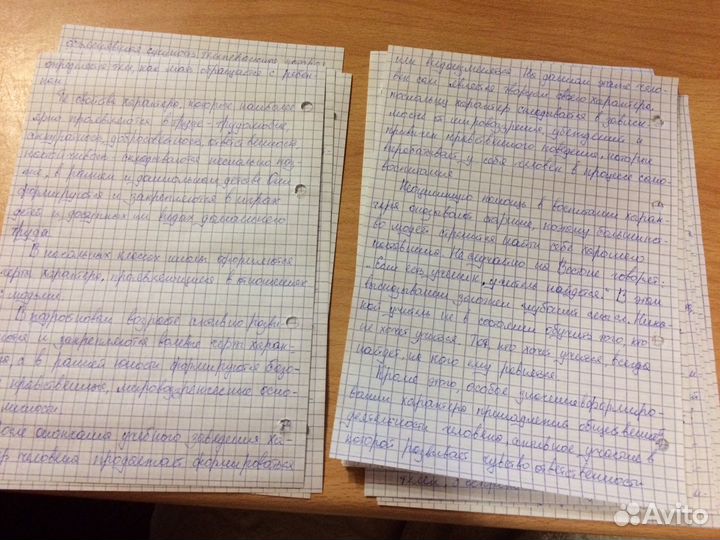 определяется тем, как мать обращается с ребен-
ком.
Те свойства характера, которые наиболее
ярко проявляются в труде - трудолюбие,
аккуратность, добросовестность, ответственность,
настойчивость - складываются несколько поз-
же, в раннем и дошкольном детстве. Они
формируются и закрепляются в играх
детей и доступных им видах домашнего
труда.
В начальных классах школы оформляются
черты характера, проявляющиеся в отношениях
с людьми.
В подростковом возрасте активно разви-
ваются и закрепляются волевые черты харак-
тера, а в ранней юности формируются базо-
вые нравственные, мировоззренческие осно-
вы личности.
После окончания учебного заведения ха-
рактер человека продолжает формироваться
или видоизменяться. На данном этапе чело-
век сам является творцом своего характера,
поскольку характер складывается в зависи-
мости от мировоззрения, убеждений и
привычек нравственного поведения, которые
вырабатывает у себя человек в процессе само-
воспитания.
Неоценимую помощь в воспитании харак-
тера оказывают старшие, поэтому большинст-
во людей стремится найти себе хорошего
наставника. Не случайно на Востоке говорят:
"Если есть ученик, учитель найдется." В этом
высказывании заложен глубокий смысл. Ника-
кой учитель не в состоянии обучить того, кто
не хочет учиться. Тот, кто хочет учиться, всегда
найдет, на кого ему равняться.
Кроме этого, особое значение в формиро-
вании характера принадлежит общественной
деятельности человека, активное участие в
которой развивает чувство ответственности
Avito